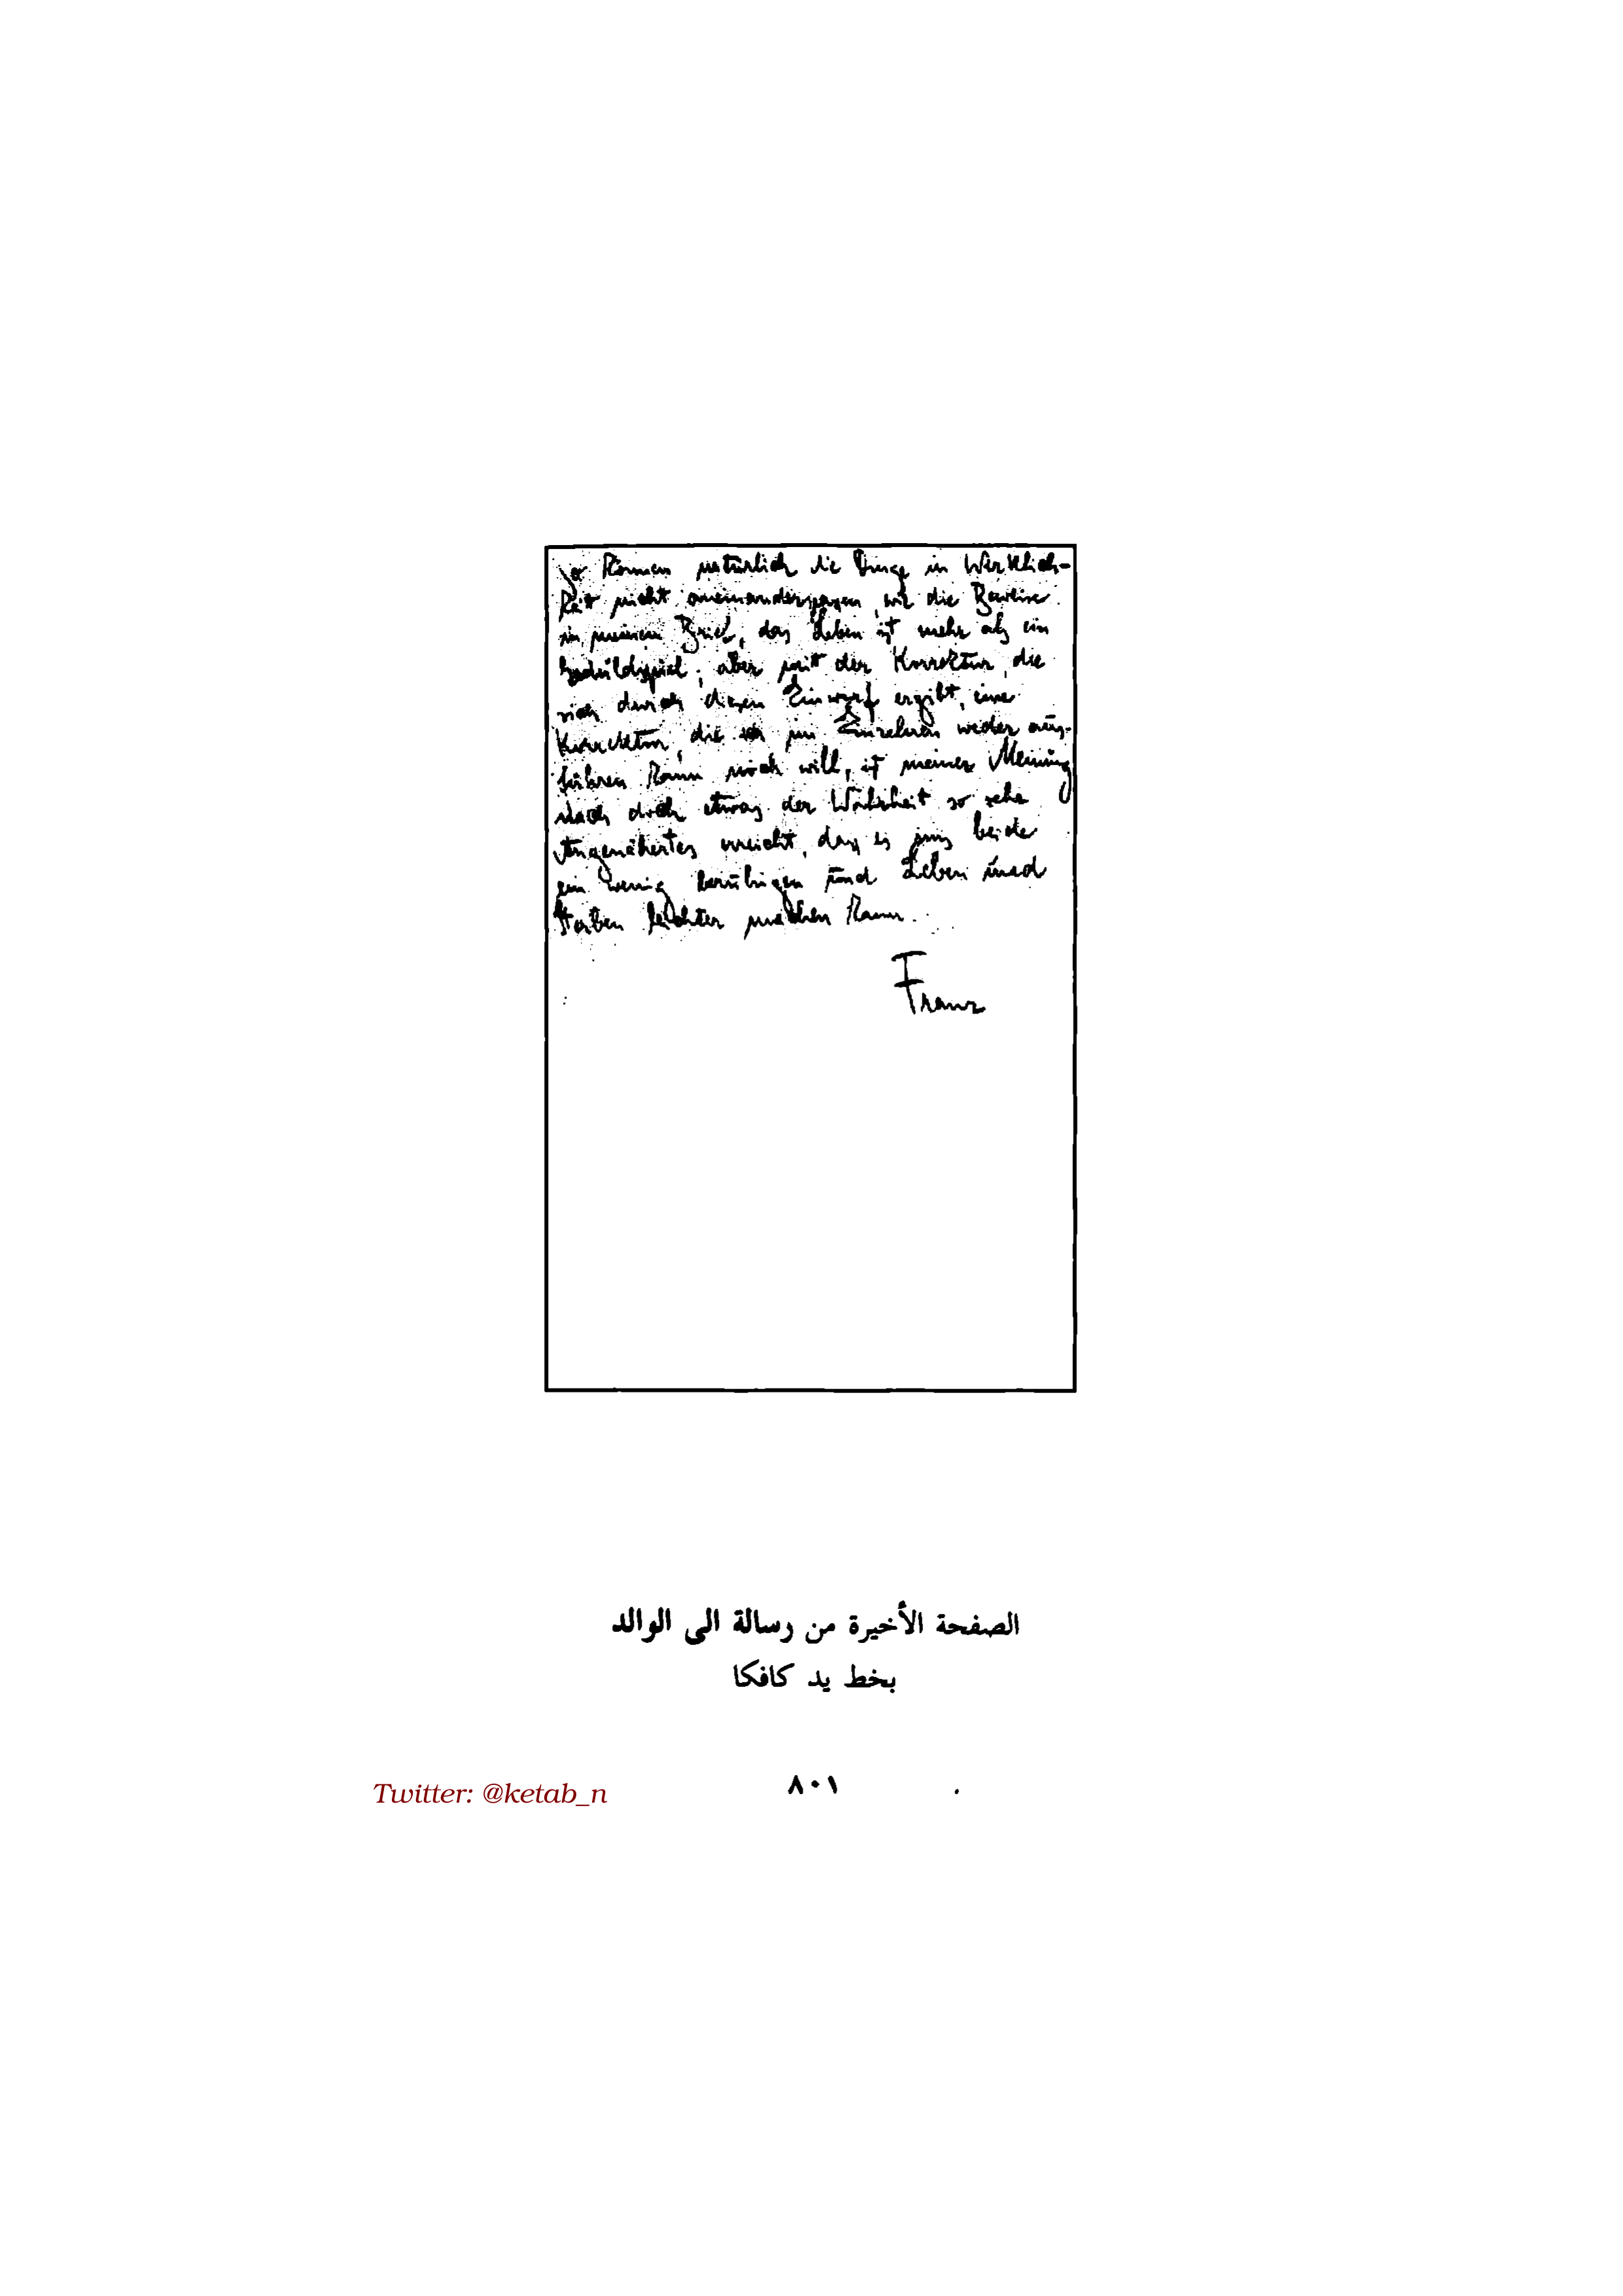 So können natürlich die Dinge in Wirklich-
keit nicht aneinanderpassen, wie die Beweise
in meinem Brief, das Leben ist mehr als ein
Geduldspiel; aber mit der Korrektur, die
sich durch diesen Einwurf ergibt, eine
Korrektur, die ich im Einzelnen weder aus-
führen kann noch will, ist meiner Meinung
nach doch etwas der Wahrheit so sehr
Angenähertes erreicht, dass es uns beide
ein wenig beruhigen und Leben und
Sterben leichter machen kann.
Franz
الصفحة الأخيرة من رسالة الى الوالد
بخط يد كافكا
٨٠١
Twitter: @ketab_n